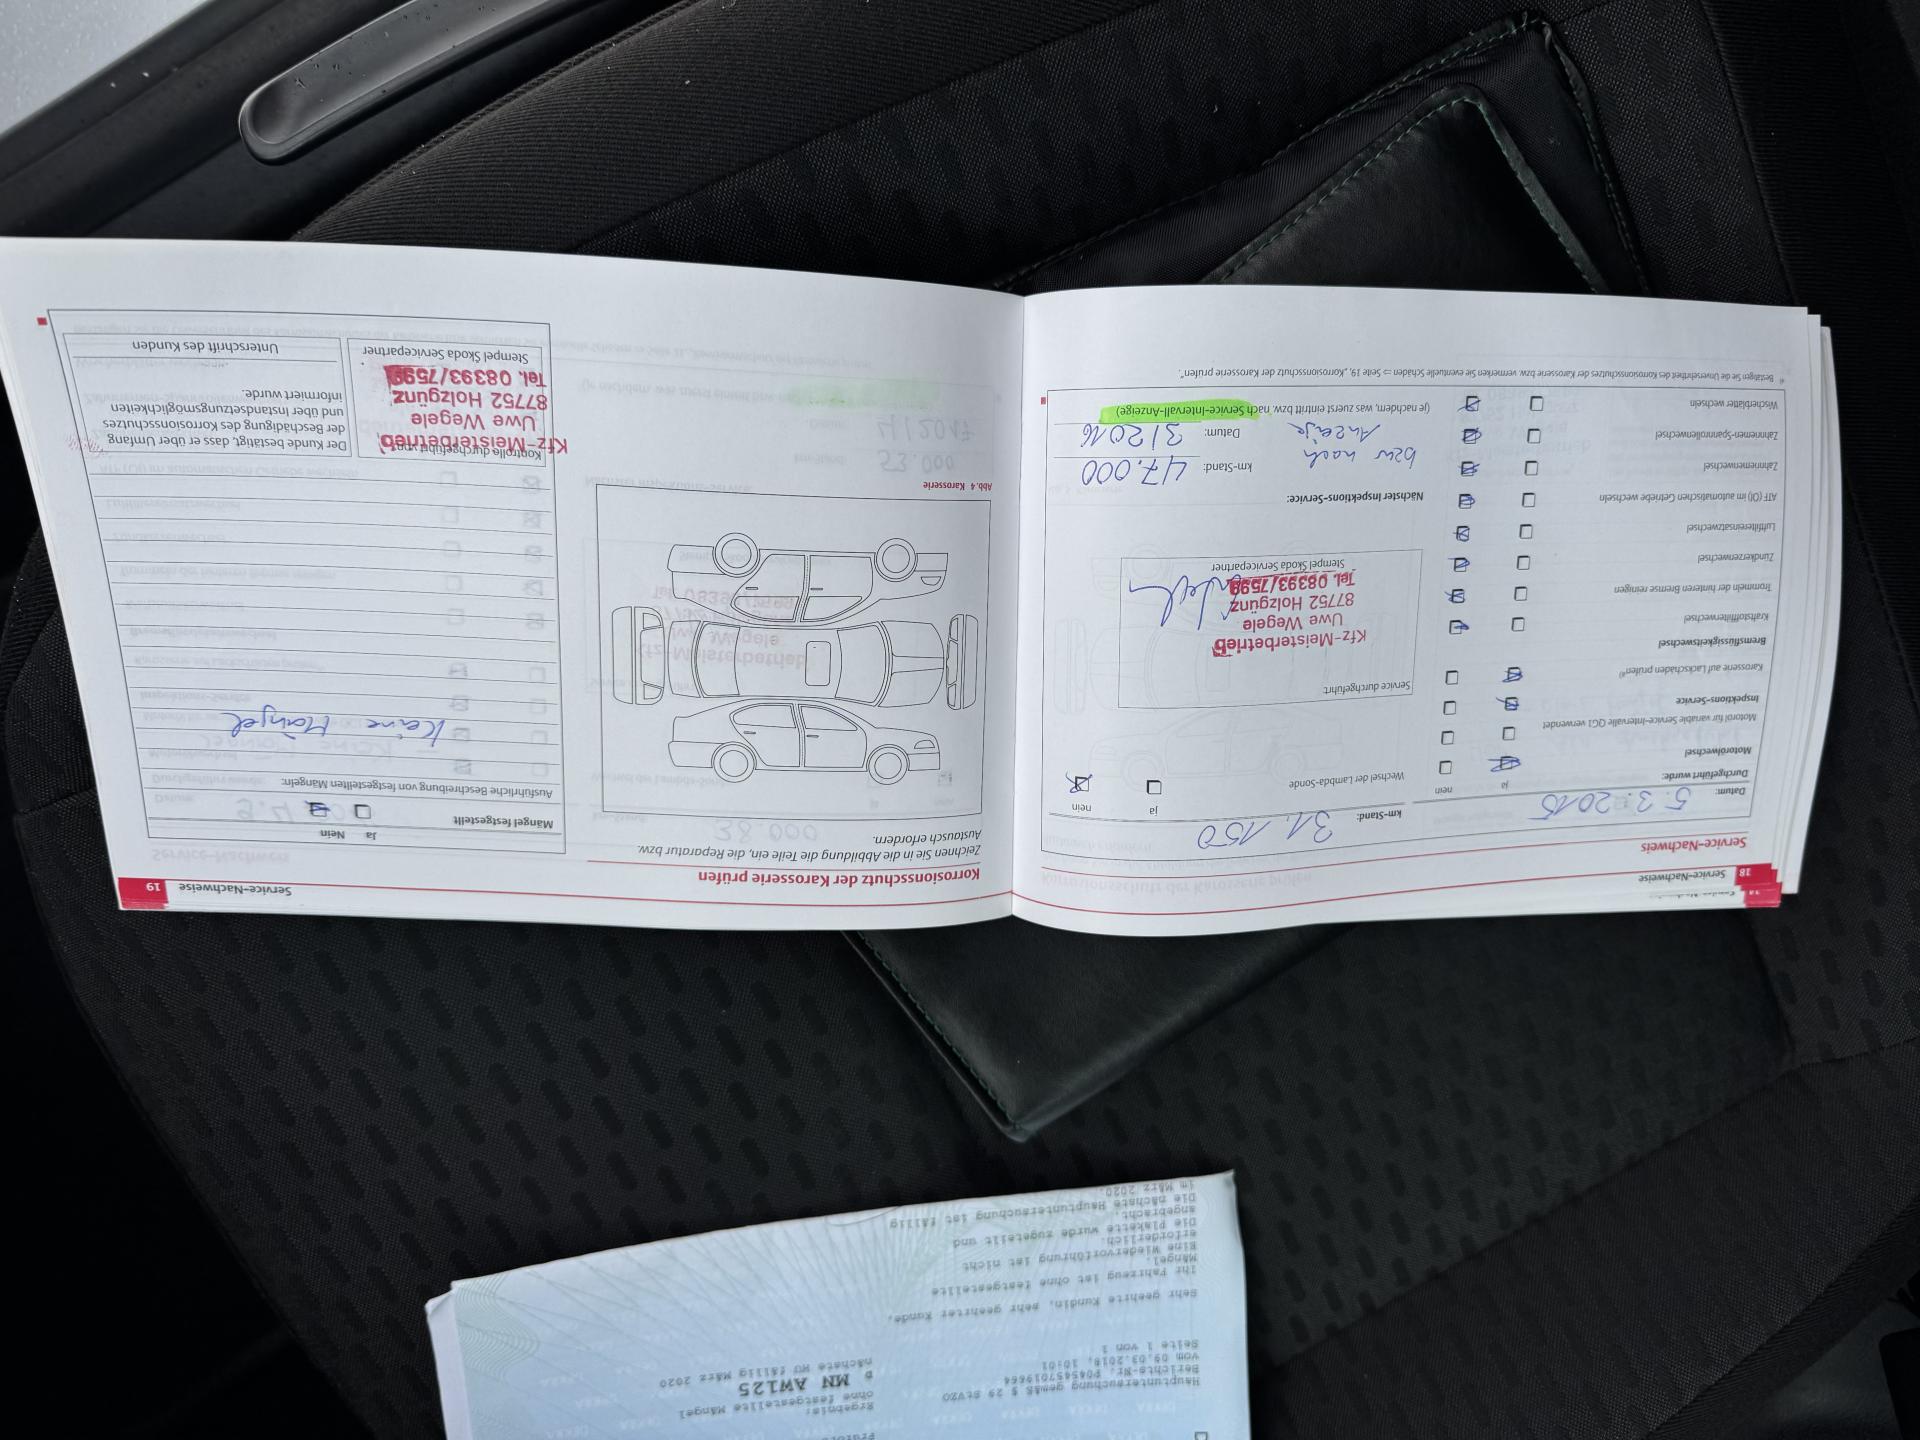 18
Service-Nachweise
Service-Nachweis
Datum: 5.3.2015
km-Stand: 31.150
Durchgeführt wurde:
ja
nein
Motorölwechsel
Motoröl für variable Service-Intervalle QG1 verwendet
Inspektions-Service
Karosserie auf Lackschäden prüfen⁴⁾
Bremsflüssigkeitswechsel
Kraftstofffilterwechsel
Trommeln der hinteren Bremse reinigen
Zündkerzenwechsel
Luftfiltereinsatzwechsel
ATF (Öl) im automatischen Getriebe wechseln
Zahnriemenwechsel
Zahnriemen-Spannrollenwechsel
Wischerblätter wechseln
ja
nein
Wechsel der Lambda-Sonde
Service durchgeführt
Kfz-Meisterbetrieb
Uwe Wegele
87752 Holzgünz
Tel. 08393/7599
Stempel Škoda Servicepartner
Nächster Inspektions-Service:
bzw nach
Anzeige
km-Stand: 47.000
Datum: 3/2016
(je nachdem, was zuerst eintritt bzw. nach Service-Intervall-Anzeige)
⁴⁾ Bestätigen Sie die Unversehrtheit des Korrosionsschutzes der Karosserie bzw. vermerken Sie eventuelle Schäden ⇒ Seite 19, „Korrosionsschutz der Karosserie prüfen“.
Service-Nachweise
19
Korrosionsschutz der Karosserie prüfen
Zeichnen Sie in die Abbildung die Teile ein, die Reparatur bzw.
Austausch erfordern.
Abb. 4 Karosserie
Ja
Nein
Mängel festgestellt
Ausführliche Beschreibung von festgestellten Mängeln:
Keine Mängel
Kontrolle durchgeführt von:
Kfz-Meisterbetrieb
Uwe Wegele
87752 Holzgünz
Tel. 08393/7599
Stempel Škoda Servicepartner
Der Kunde bestätigt, dass er über Umfang
der Beschädigung des Korrosionsschutzes
und über Instandsetzungsmöglichkeiten
informiert wurde.
Unterschrift des Kunden
Hauptuntersuchung gemäß § 29 StVZO
Berichts-Nr. P045457019664
vom 09.03.2018, 10:01
Seite 1 von 1
Ergebnis:
ohne festgestellte Mängel
D MN AW125
nächste HU fällig März 2020
Sehr geehrte Kundin, sehr geehrter Kunde,
Ihr Fahrzeug ist ohne festgestellte
Mängel.
Eine Wiedervorführung ist nicht
erforderlich.
Die Plakette wurde zugeteilt und
angebracht.
Die nächste Hauptuntersuchung ist fällig
im März 2020.